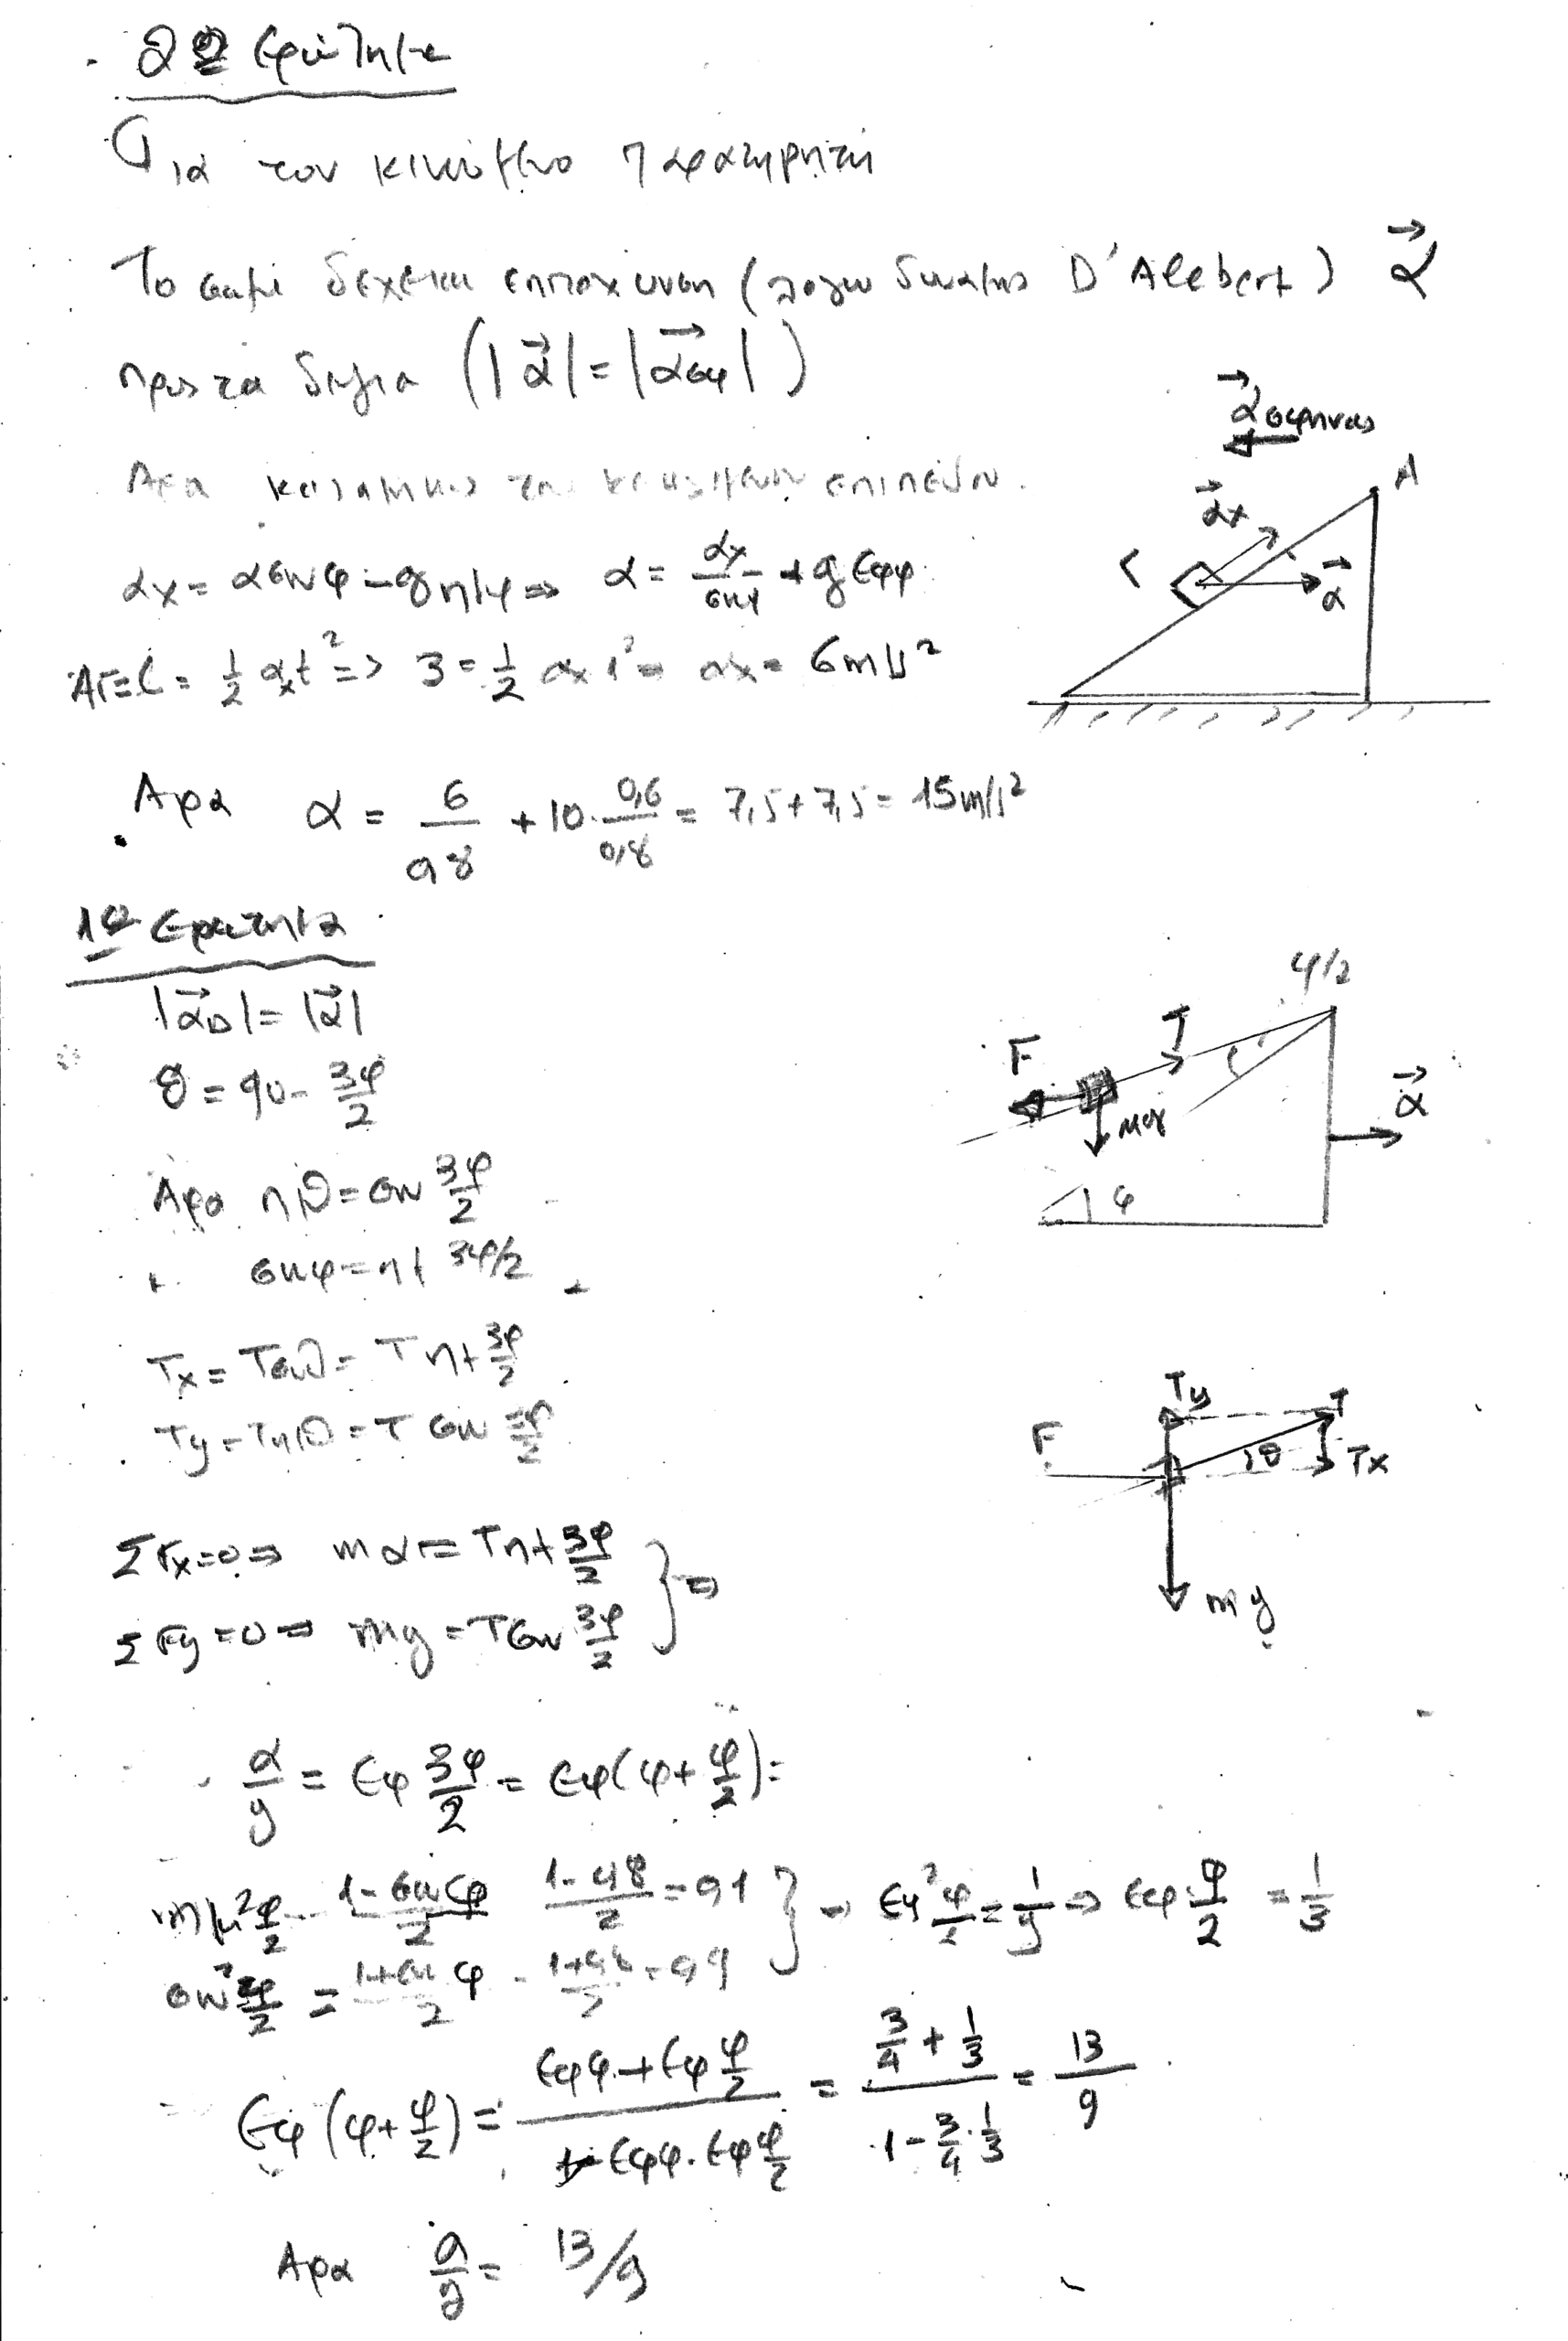 2º Ερώτημα
Για τον κινούμενο παρατηρητή
Το σώμα δέχεται επιτάχυνση (λόγω δυνάμης D'Alebert) α⃗
προς τα δεξιά (|α⃗| = |α⃗σφ|)
α⃗σφηνας
Άρα κατά μήκος του κεκλιμένου επιπέδου.
A
α⃗x
α⃗
αx = ασυνφ - gημφ ⇒ α = αx/συνφ + gεφφ
ΑΓ = l = 1/2 αxt² ⇒ 3 = 1/2 αx 1² ⇒ αx = 6m/s²
Άρα α = 6/0,8 + 10·0,6/0,8 = 7,5+7,5 = 15m/s²
1º Ερώτημα
|α⃗D| = |α⃗|
θ = 90 - 3φ/2
φ/2
T
F
mg
α⃗
φ
Άρα ημθ = συν 3φ/2
συνφ = ημ 3φ/2
Tx = Tσυνθ = Tημ 3φ/2
Ty = Tημθ = Tσυν 3φ/2
Ty
T
F
θ
Tx
mg
ΣFx=0 ⇒ mα = Tημ 3φ/2
ΣFy=0 ⇒ mg = Tσυν 3φ/2 } ⇒
α/g = εφ 3φ/2 = εφ(φ+φ/2) =
ημ² φ/2 = 1-συνφ/2 = 1-0,8/2 = 0,1
συν² φ/2 = 1+συνφ/2 = 1+0,8/2 = 0,9 } ⇒ εφ² φ/2 = 1/9 ⇒ εφ φ/2 = 1/3
εφ(φ+φ/2) = εφφ+εφ φ/2 / 1-εφφ·εφ φ/2 = 3/4 + 1/3 / 1-3/4·1/3 = 13/9
Άρα α/g = 13/9